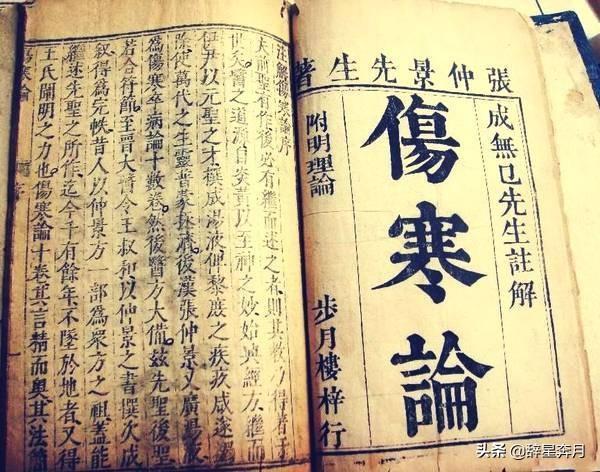 張仲景先生著
成無已先生註解
傷寒論
附明理論
步月樓梓行
注解傷寒論序
夫前聖有作後必有繼而述之者則其教乃得著于
世矣醫之道源自炎黃以至神之妙始興經方繼而
伊尹以元聖之才撰成湯液俾黎庶之疾疢咸遂蠲
除使萬代之生靈普蒙拯濟後漢張仲景又廣湯液
為傷寒卒病論十數卷然後醫方大備茲先聖後聖
若合符節至晉太醫令王叔和以仲景之書撰次成
叙得為完帙昔人以仲景方一部為眾方之祖蓋能
繼述先聖之所作迄今千有餘年不墜於地者又得
王氏闡明之力也傷寒論十卷其言精而奧其法簡
傷寒論
序
头条 @辞星奔月